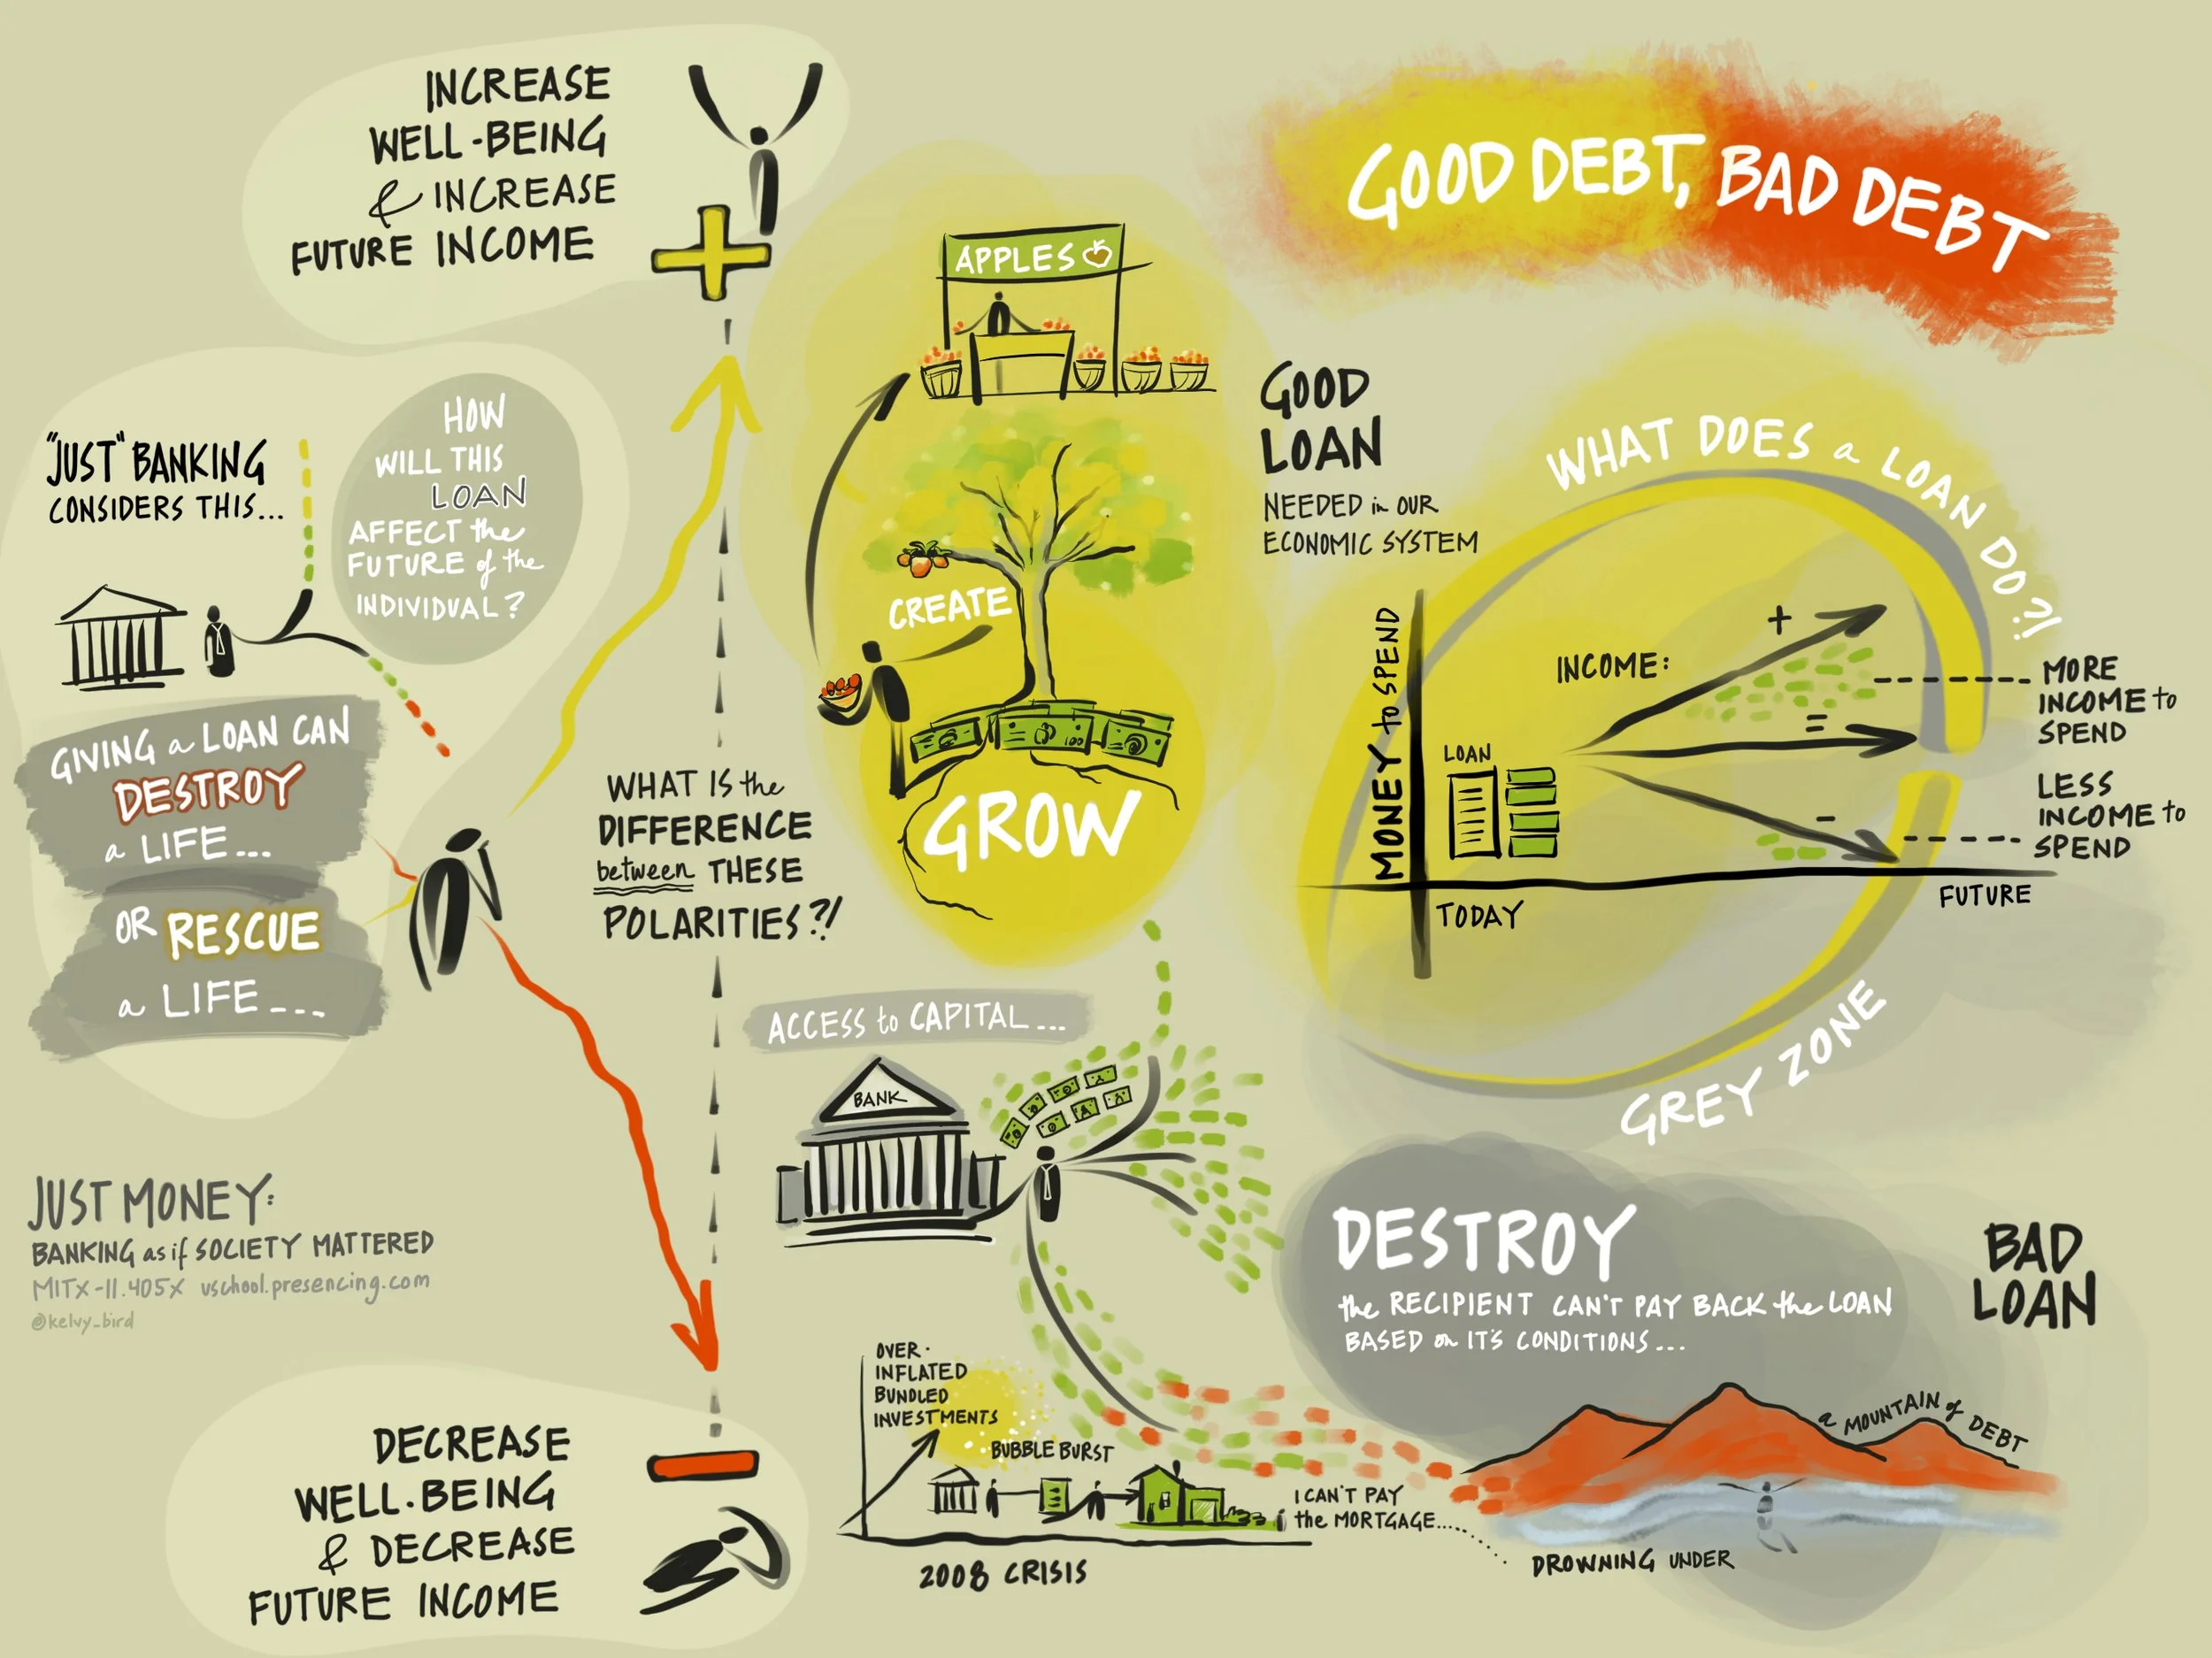 GOOD DEBT, BAD DEBT
INCREASE
WELL-BEING
& INCREASE
FUTURE INCOME
"JUST" BANKING
CONSIDERS THIS...
HOW
WILL THIS
LOAN
AFFECT the
FUTURE of the
INDIVIDUAL?
GIVING a LOAN CAN
DESTROY
a LIFE...
OR RESCUE
a LIFE...
WHAT IS the
DIFFERENCE
between THESE
POLARITIES?!
APPLES
CREATE
GROW
GOOD
LOAN
NEEDED in OUR
ECONOMIC SYSTEM
WHAT DOES a LOAN DO?!
MONEY to SPEND
INCOME:
+
=
-
LOAN
MORE
INCOME to
SPEND
LESS
INCOME to
SPEND
TODAY
FUTURE
GREY ZONE
ACCESS to CAPITAL...
BANK
JUST MONEY:
BANKING as if SOCIETY MATTERED
MITX-11.405X vschool.presencing.com
@kelvy_bird
DECREASE
WELL-BEING
& DECREASE
FUTURE INCOME
OVER-
INFLATED
BUNDLED
INVESTMENTS
BUBBLE BURST
I CAN'T PAY
the MORTGAGE...
2008 CRISIS
DESTROY
the RECIPIENT CAN'T PAY BACK the LOAN
BASED on IT'S CONDITIONS...
BAD
LOAN
a MOUNTAIN of DEBT
DROWNING UNDER